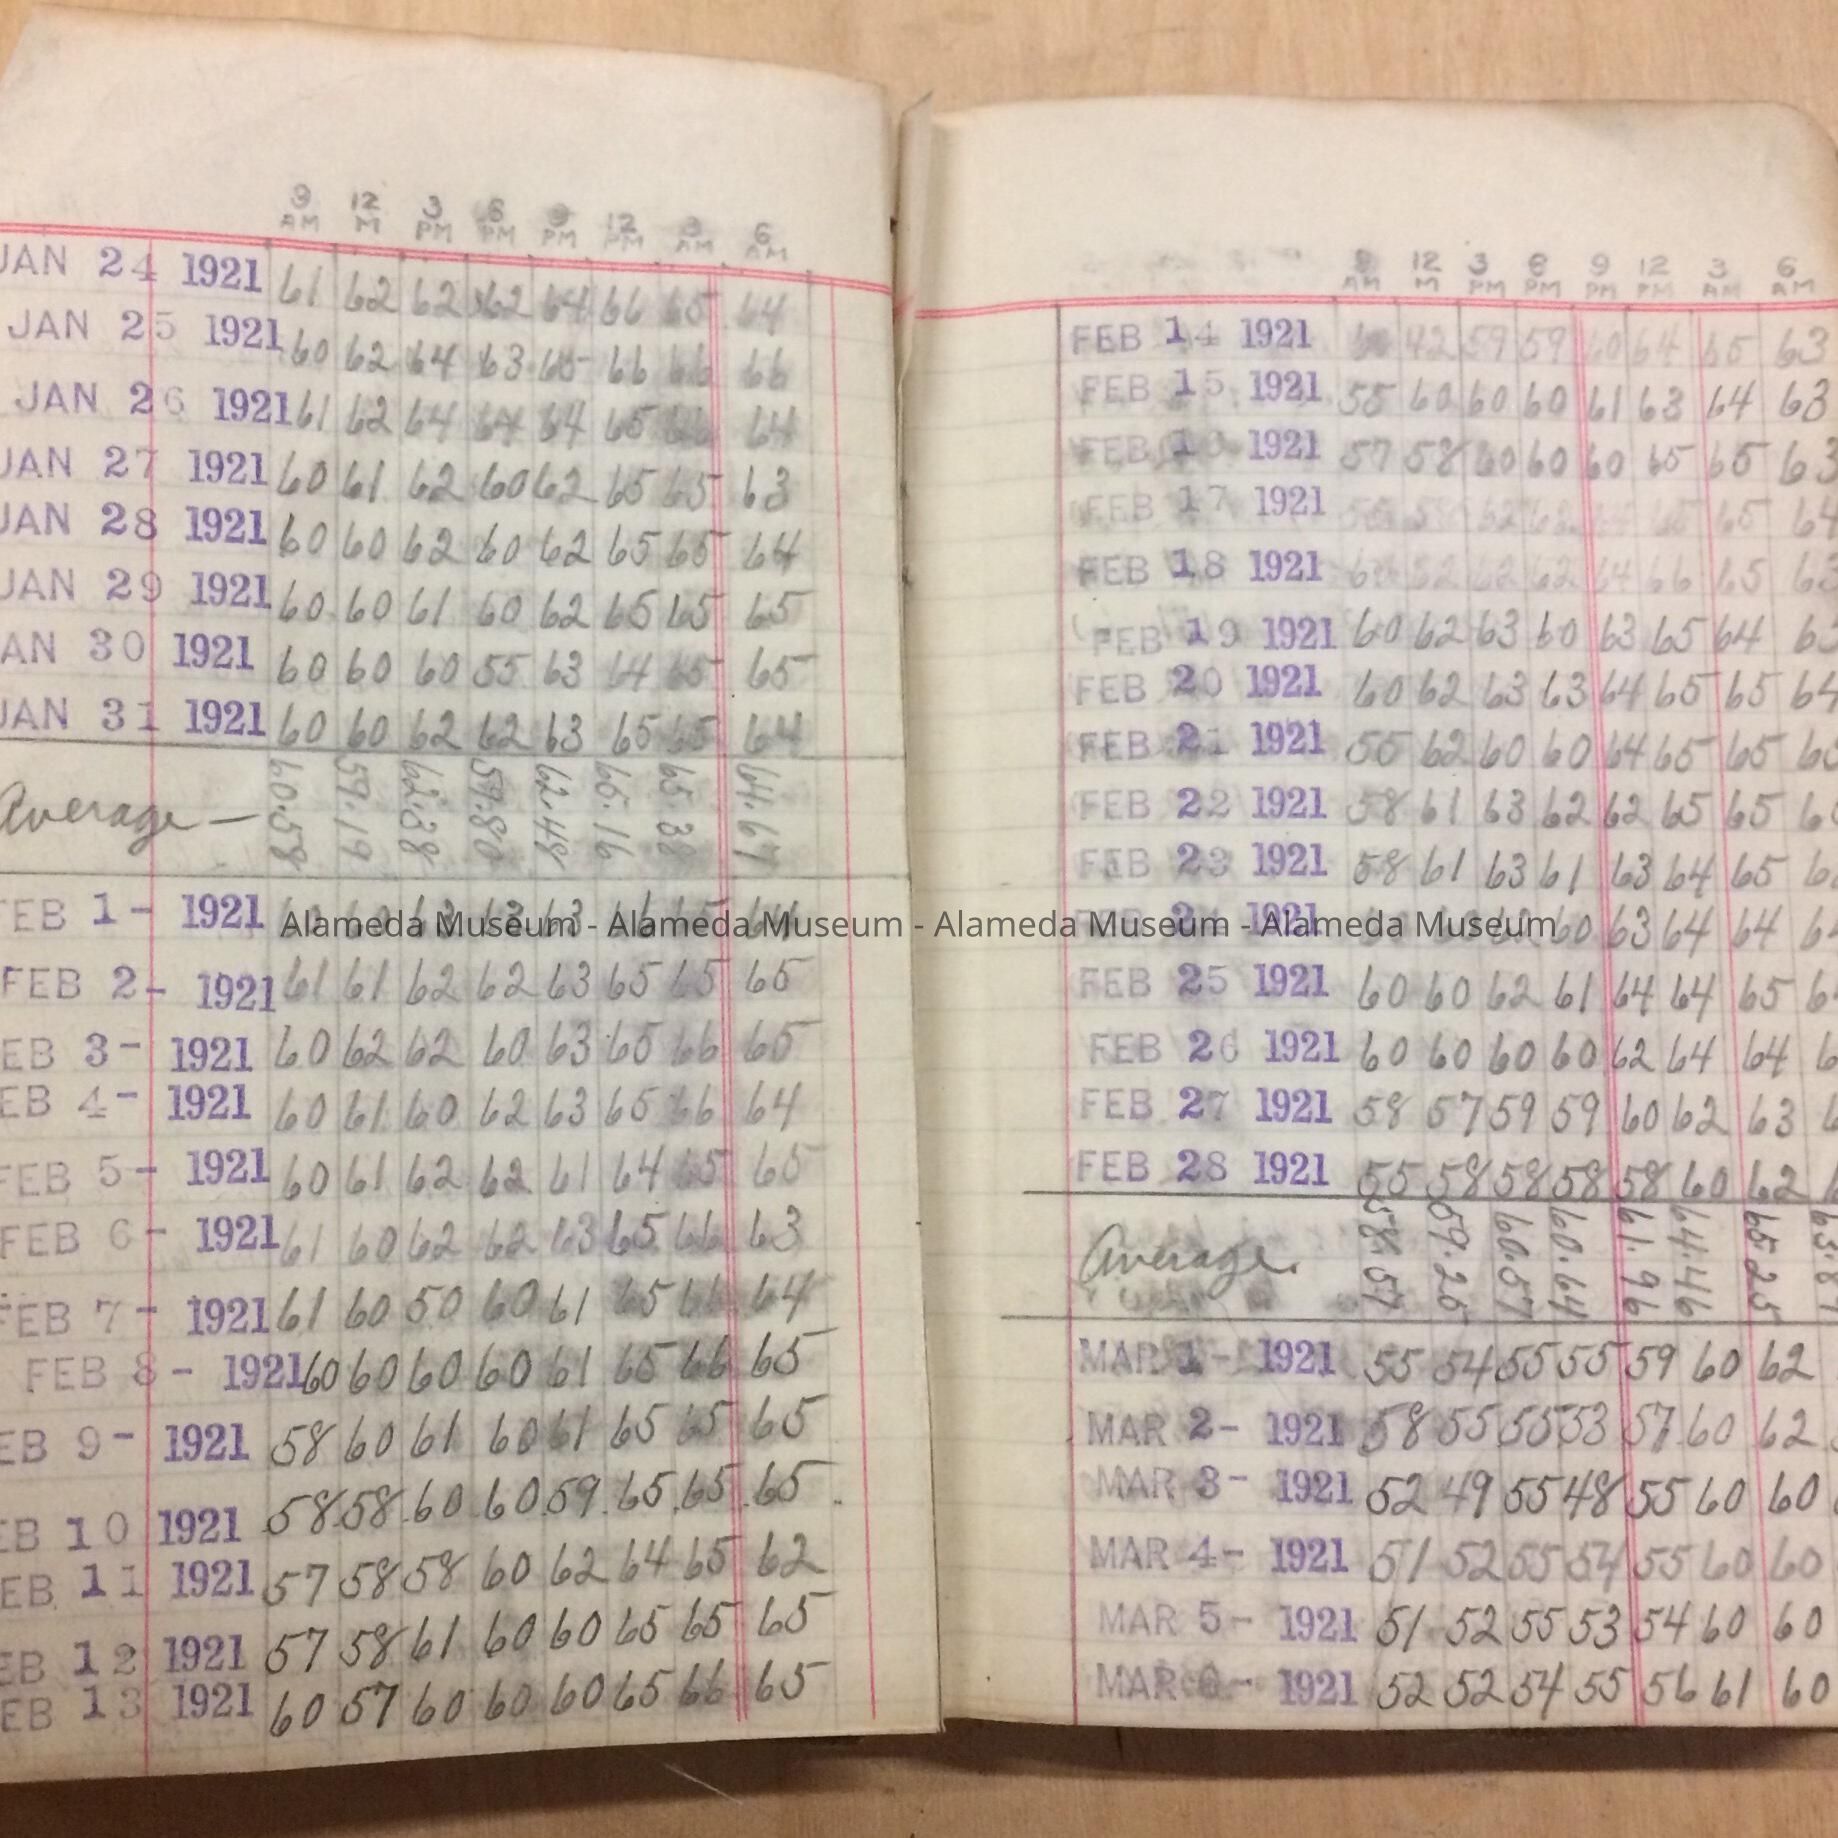 9 12 3 6 9 12 3 6
AM M PM PM PM PM AM AM
JAN 24 1921 61 62 62 62 64 66 65 64
JAN 25 1921 60 62 64 63 65 66 66 66
JAN 26 1921 61 62 64 64 64 65 66 64
JAN 27 1921 60 61 62 60 62 65 65 63
JAN 28 1921 60 60 62 60 62 65 65 64
JAN 29 1921 60 60 61 60 62 65 65 65
AN 30 1921 60 60 60 55 63 64 65 65
JAN 31 1921 60 60 62 62 63 65 65 64
Average — 60.58 59.19 62.38 59.80 62.48 65.16 65.38 64.67
FEB 1- 1921 63 64
FEB 2- 1921 61 61 62 62 63 65 65 65
EB 3- 1921 60 62 62 60 63 65 66 65
EB 4- 1921 60 61 60 62 63 65 66 64
FEB 5- 1921 60 61 62 62 61 64 65 65
FEB 6- 1921 61 60 62 62 63 65 66 63
FEB 7- 1921 61 60 50 60 61 65 66 64
FEB 8- 1921 60 60 60 60 61 65 66 65
EB 9- 1921 58 60 61 60 61 65 65 65
EB 10 1921 58 58 60 60 59 65 65 65
EB 11 1921 57 58 58 60 62 64 65 62
EB 12 1921 57 58 61 60 60 65 65 65
EB 13 1921 60 57 60 60 60 65 66 65
12 3 6 9 12 3 6
AM M PM PM PM PM AM AM
FEB 14 1921 42 59 59 60 64 65 63
FEB 15 1921 55 60 60 60 61 63 64 63
FEB 16 1921 57 58 60 60 60 65 65 63
FEB 17 1921 62 65 64
FEB 18 1921 60 52 62 62 64 66 65 63
FEB 19 1921 60 62 63 60 63 65 64 63
FEB 20 1921 60 62 63 63 64 65 65 64
FEB 21 1921 55 62 60 60 64 65 65
FEB 22 1921 58 61 63 62 62 65 65
FEB 23 1921 58 61 63 61 63 64 65
1921 60 63 64 64
FEB 25 1921 60 60 62 61 64 64 65
FEB 26 1921 60 60 60 60 62 64 64
FEB 27 1921 58 57 59 59 60 62 63
FEB 28 1921 55 58 58 58 58 60 62
Average. 58.57 59.25 60.57 60.64 61.96 64.46 65.25 63.81
MAR 1- 1921 55 54 55 55 59 60 62
MAR 2- 1921 58 55 55 53 57 60 62
MAR 3- 1921 52 49 55 48 55 60 60
MAR 4- 1921 51 52 55 54 55 60 60
MAR 5- 1921 51 52 55 53 54 60 60
MAR 6- 1921 52 52 54 55 56 61 60
Alameda Museum - Alameda Museum - Alameda Museum - Alameda Museum